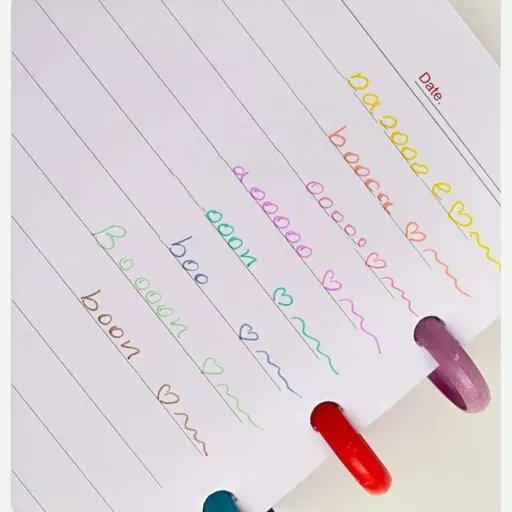 Date.
naooooe ♡
boora ♡
ooooo ♡
aooooo ♡
ooon ♡
boo ♡
Boooon ♡
boon ♡